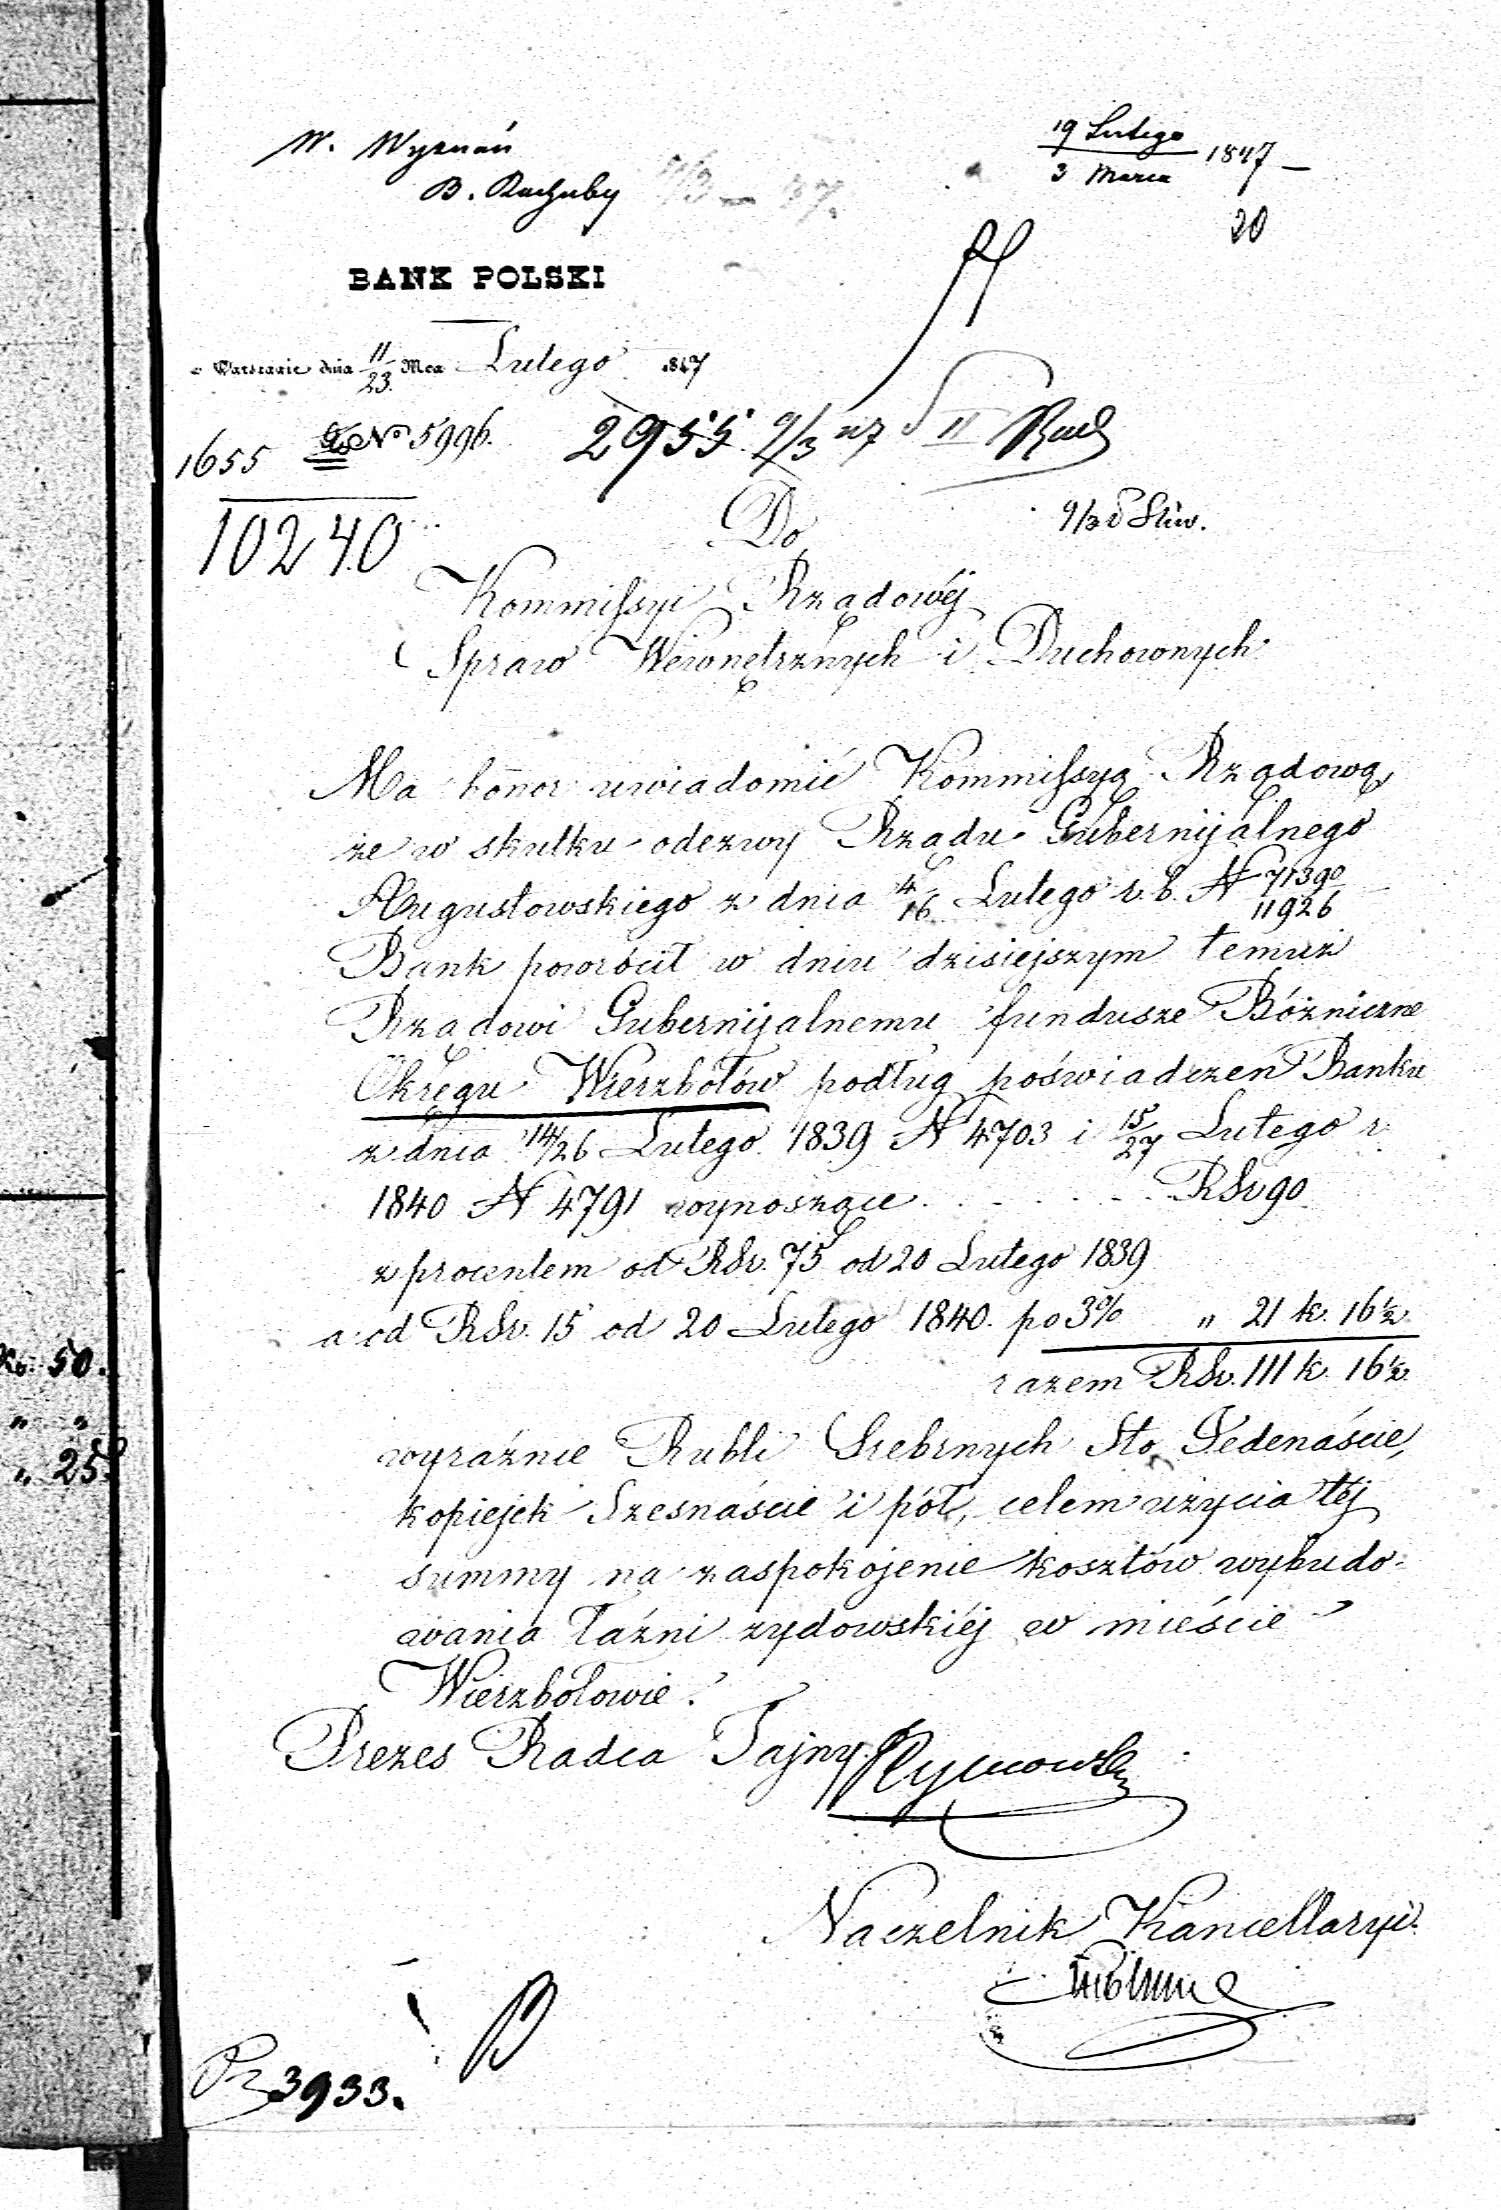 W. Wyznań
19 Lutego
3 Marca 1847
B. Rachuby
20
BANK POLSKI
w Warszawie dnia 11/23 Mca Lutego 1847
1655 No 5996.
2955. 9/3 47 II Rach
10240
9/3
Do
Kommissyi Rządowéj
Spraw Wewnętrznych i Duchownych
Ma honor uwiadomić Kommissyą Rządową,
że w skutku odezwy Rządu Gubernijalnego
Augustowskiego z dnia 4/16 Lutego r. b. N 71390/11926
Bank powrócił w dniu dzisiejszym temuż
Rządowi Gubernijalnemu fundusze Bóżniczne
Okręgu Wierzbołów podług poświadczeń Banku
z dnia 14/26 Lutego 1839 N 4703 i 15/27 Lutego r.
1840 N 4791 wynoszące . . . . . RSr 90
z procentem od RSr. 75 od 20 Lutego 1839
a od RSr. 15 od 20 Lutego 1840. po 3% „ 21 k. 16½
razem RSr. 111 k. 16½
wyraźnie Rubli Srebrnych Sto Jedenaście,
kopiejek Szesnaście i pół, celem użycia téj
summy na zaspokojenie kosztów wybudo-
wania Łaźni żydowskiéj w mieście
Wierzbołowie.
Prezes Radca Tajny
Naczelnik Kancellaryi.
3933.
Ko. 50.
„ „
„ 25.